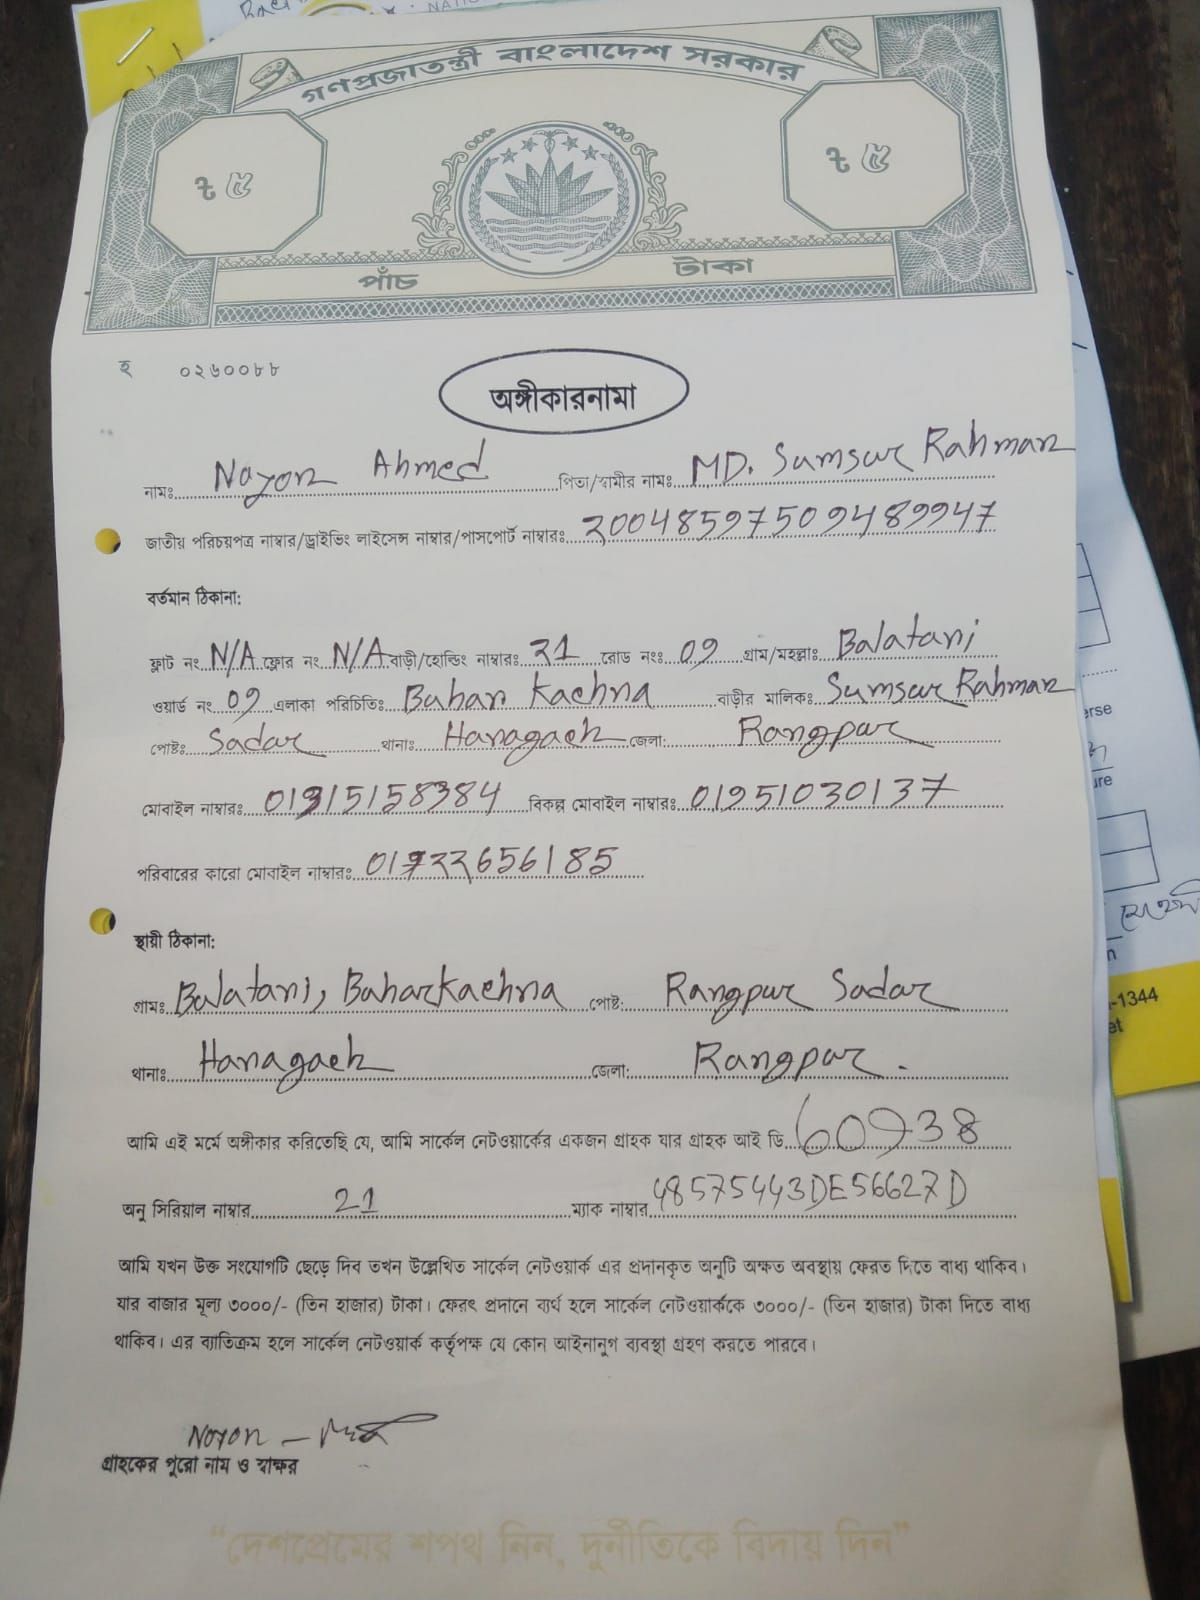 গণপ্রজাতন্ত্রী বাংলাদেশ সরকার
৳ ৫ ৳ ৫
পাঁচ টাকা
হ ০২৬০০৮৮
অঙ্গীকারনামা
নামঃ Nayon Ahmed পিতা/স্বামীর নামঃ MD. Sumsur Rahman
জাতীয় পরিচয়পত্র নাম্বার/ড্রাইভিং লাইসেন্স নাম্বার/পাসপোর্ট নাম্বারঃ 20048597509489947
বর্তমান ঠিকানা:
ফ্লাট নং N/A ফ্লোর নং N/A বাড়ী/হোল্ডিং নাম্বারঃ 21 রোড নংঃ 09 গ্রাম/মহল্লাঃ Balatari
ওয়ার্ড নং 09 এলাকা পরিচিতিঃ Bahar Kachna বাড়ীর মালিক: Sumsur Rahman
পোষ্টঃ Sadar থানাঃ Haragach জেলা: Rangpur
মোবাইল নাম্বারঃ 01315158384 বিকল্প মোবাইল নাম্বারঃ 01951030137
পরিবারের কারো মোবাইল নাম্বারঃ
স্থায়ী ঠিকানা:
গ্রামঃ Balatari, Baharkachna পোষ্ট: Rangpur Sadar
থানাঃ Haragach জেলা: Rangpur.
আমি এই মর্মে অঙ্গীকার করিতেছি যে, আমি সার্কেল নেটওয়ার্কের একজন গ্রাহক যার গ্রাহক আই ডি 60938
অনু সিরিয়াল নাম্বার 21 ম্যাক নাম্বার 48575443DE56627D
আমি যখন উক্ত সংযোগটি ছেড়ে দিব তখন উল্লেখিত সার্কেল নেটওয়ার্ক এর প্রদানকৃত অনুটি অক্ষত অবস্থায় ফেরত দিতে বাধ্য থাকিব।
যার বাজার মূল্য ৩০০০/- (তিন হাজার) টাকা। ফেরৎ প্রদানে ব্যর্থ হলে সার্কেল নেটওয়ার্ককে ৩০০০/- (তিন হাজার) টাকা দিতে বাধ্য
থাকিব। এর ব্যতিক্রম হলে সার্কেল নেটওয়ার্ক কর্তৃপক্ষ যে কোন আইনানুগ ব্যবস্থা গ্রহণ করতে পারবে।
Nayon
গ্রাহকের পুরো নাম ও স্বাক্ষর
“দেশপ্রেমের শপথ নিন, দুর্নীতিকে বিদায় দিন”
-1344